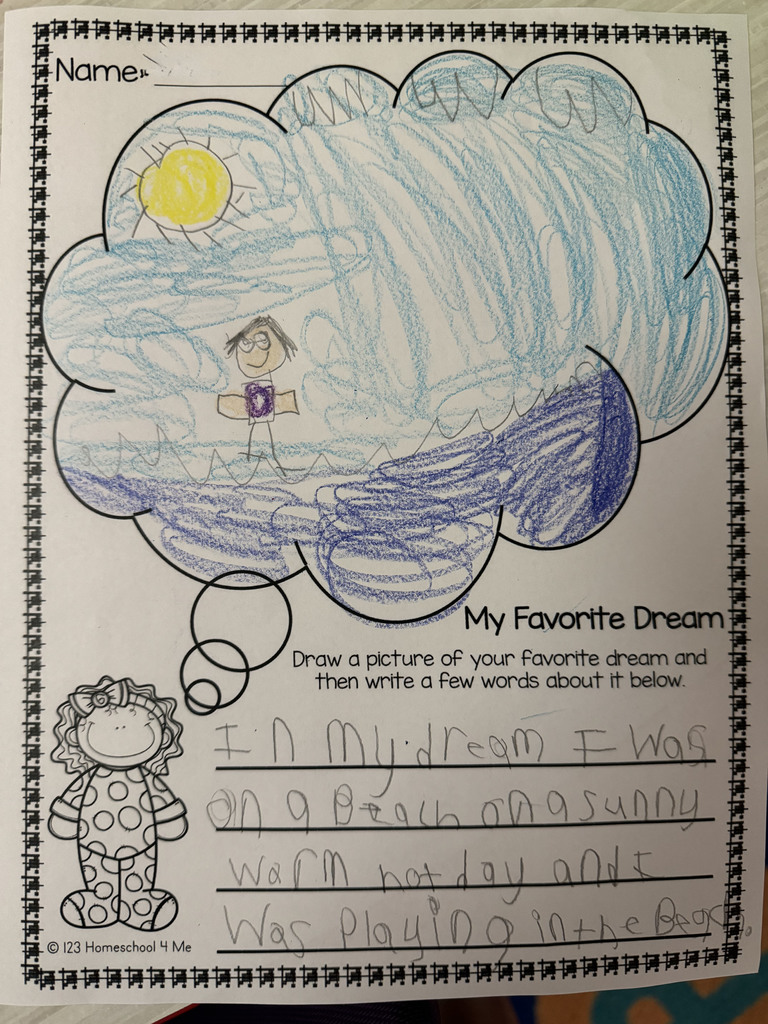 Name:
My Favorite Dream
Draw a picture of your favorite dream and
then write a few words about it below.
In my dream I was
on a Beach on a sunny
warm hot day and I
was playing in the Beach.
© 123 Homeschool 4 Me